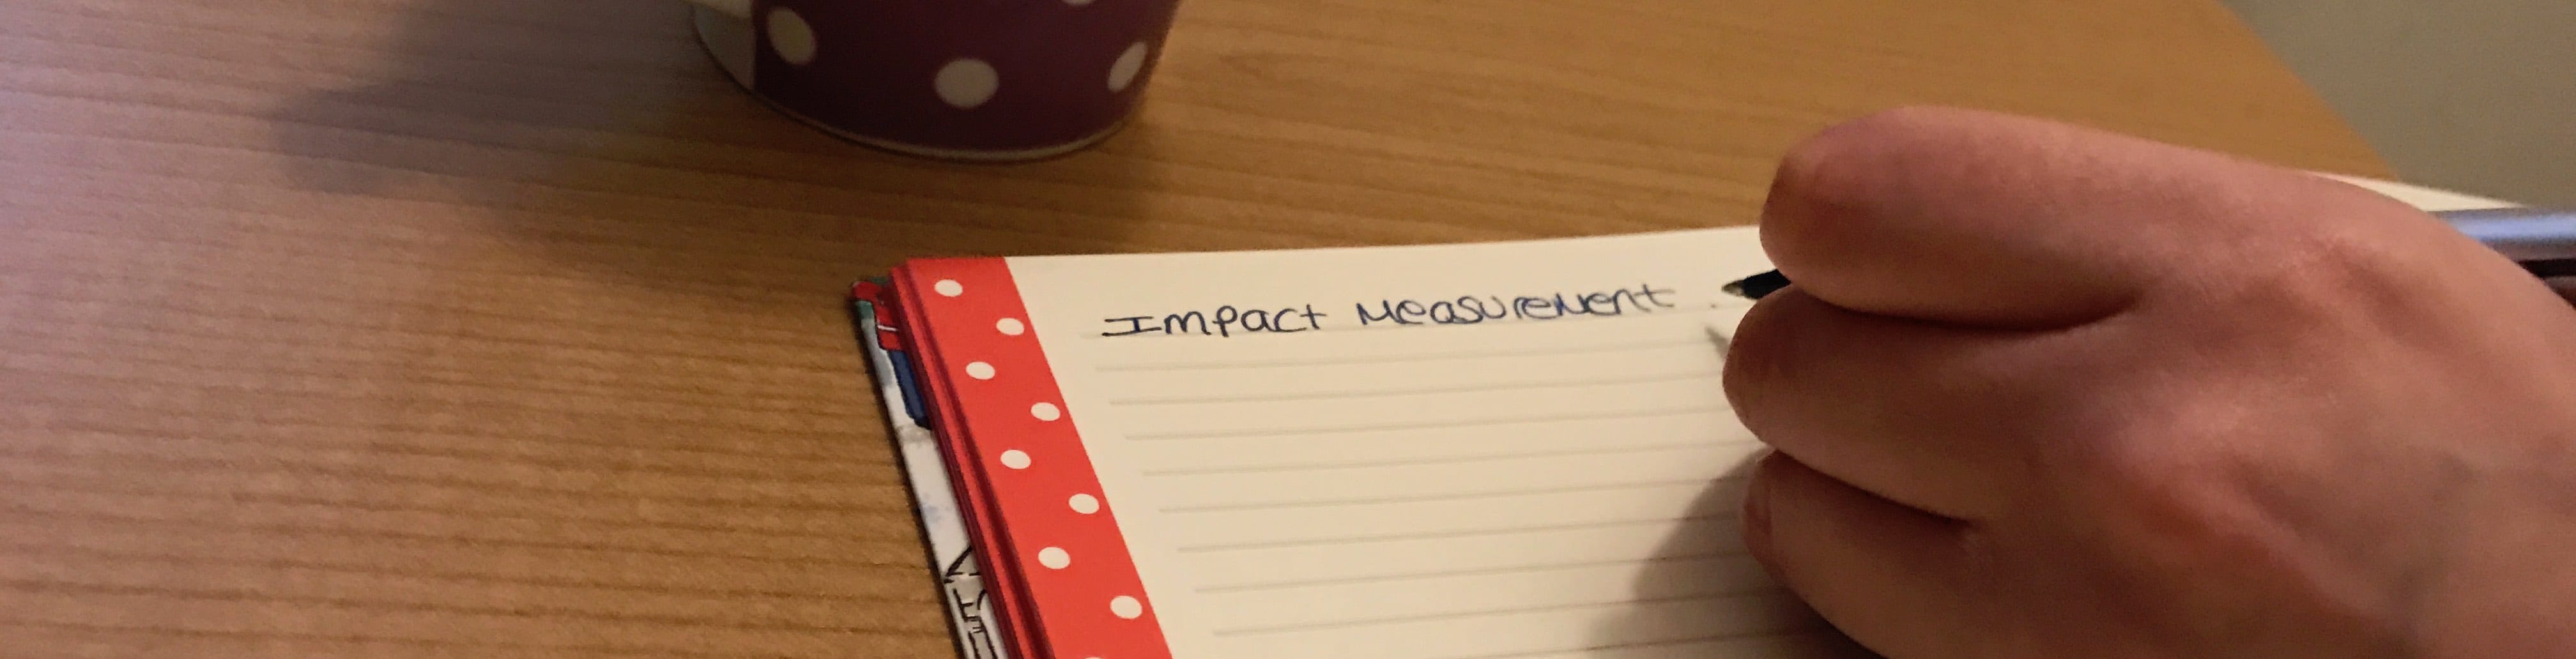 Impact Measurement